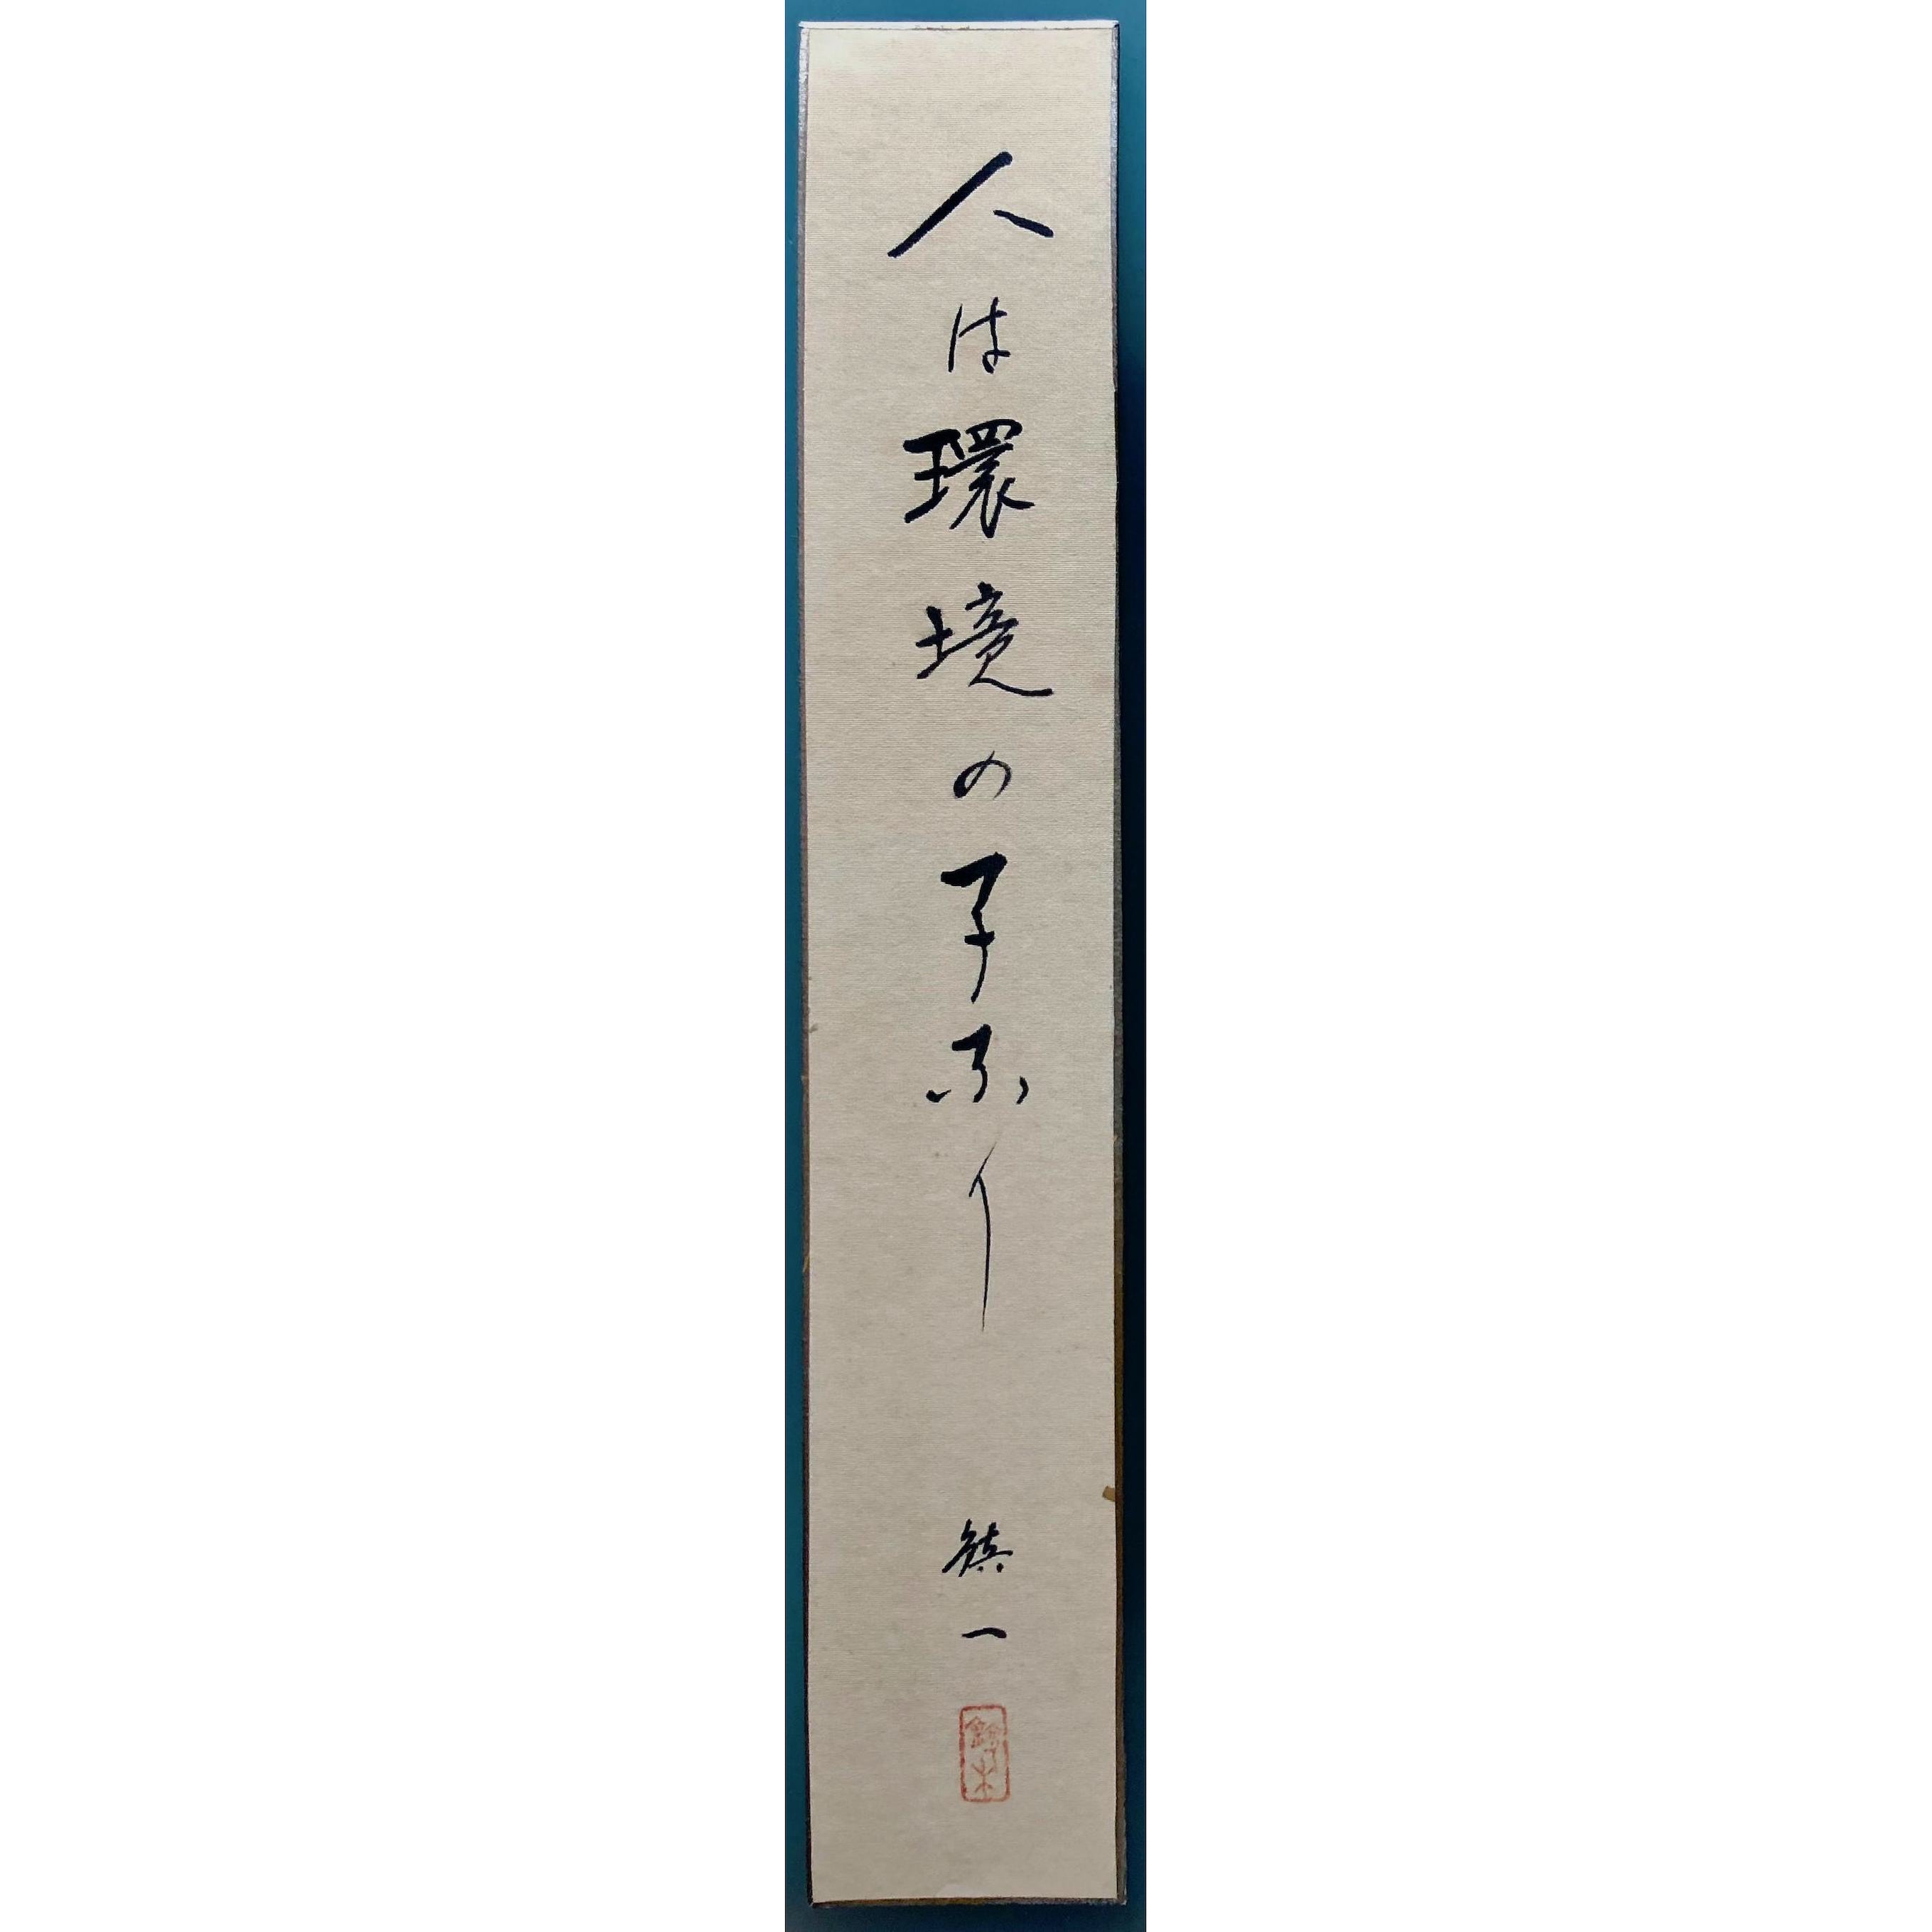 人は環境の子なり
鎮一
鈴木